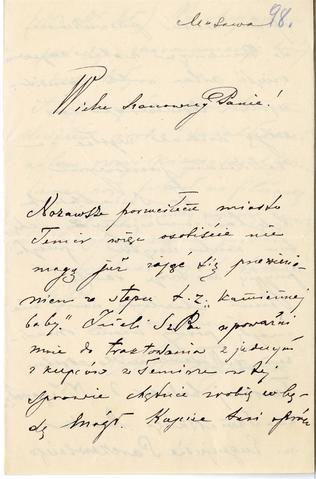 Mława 98.
Wielce Szanowny Panie!
Nazawsze porzuciłem miasto
Temir więc osobiście nie
mogę już zająć się przewie-
zieniem ze stepu t. z. "kamiennej
baby." Jeżeli Sz Pan upoważni
mnie do traktowania z jednym
z kupców w Temirze w tej
sprawie chętnie zrobię co bę-
dę mógł. Kupiec ten